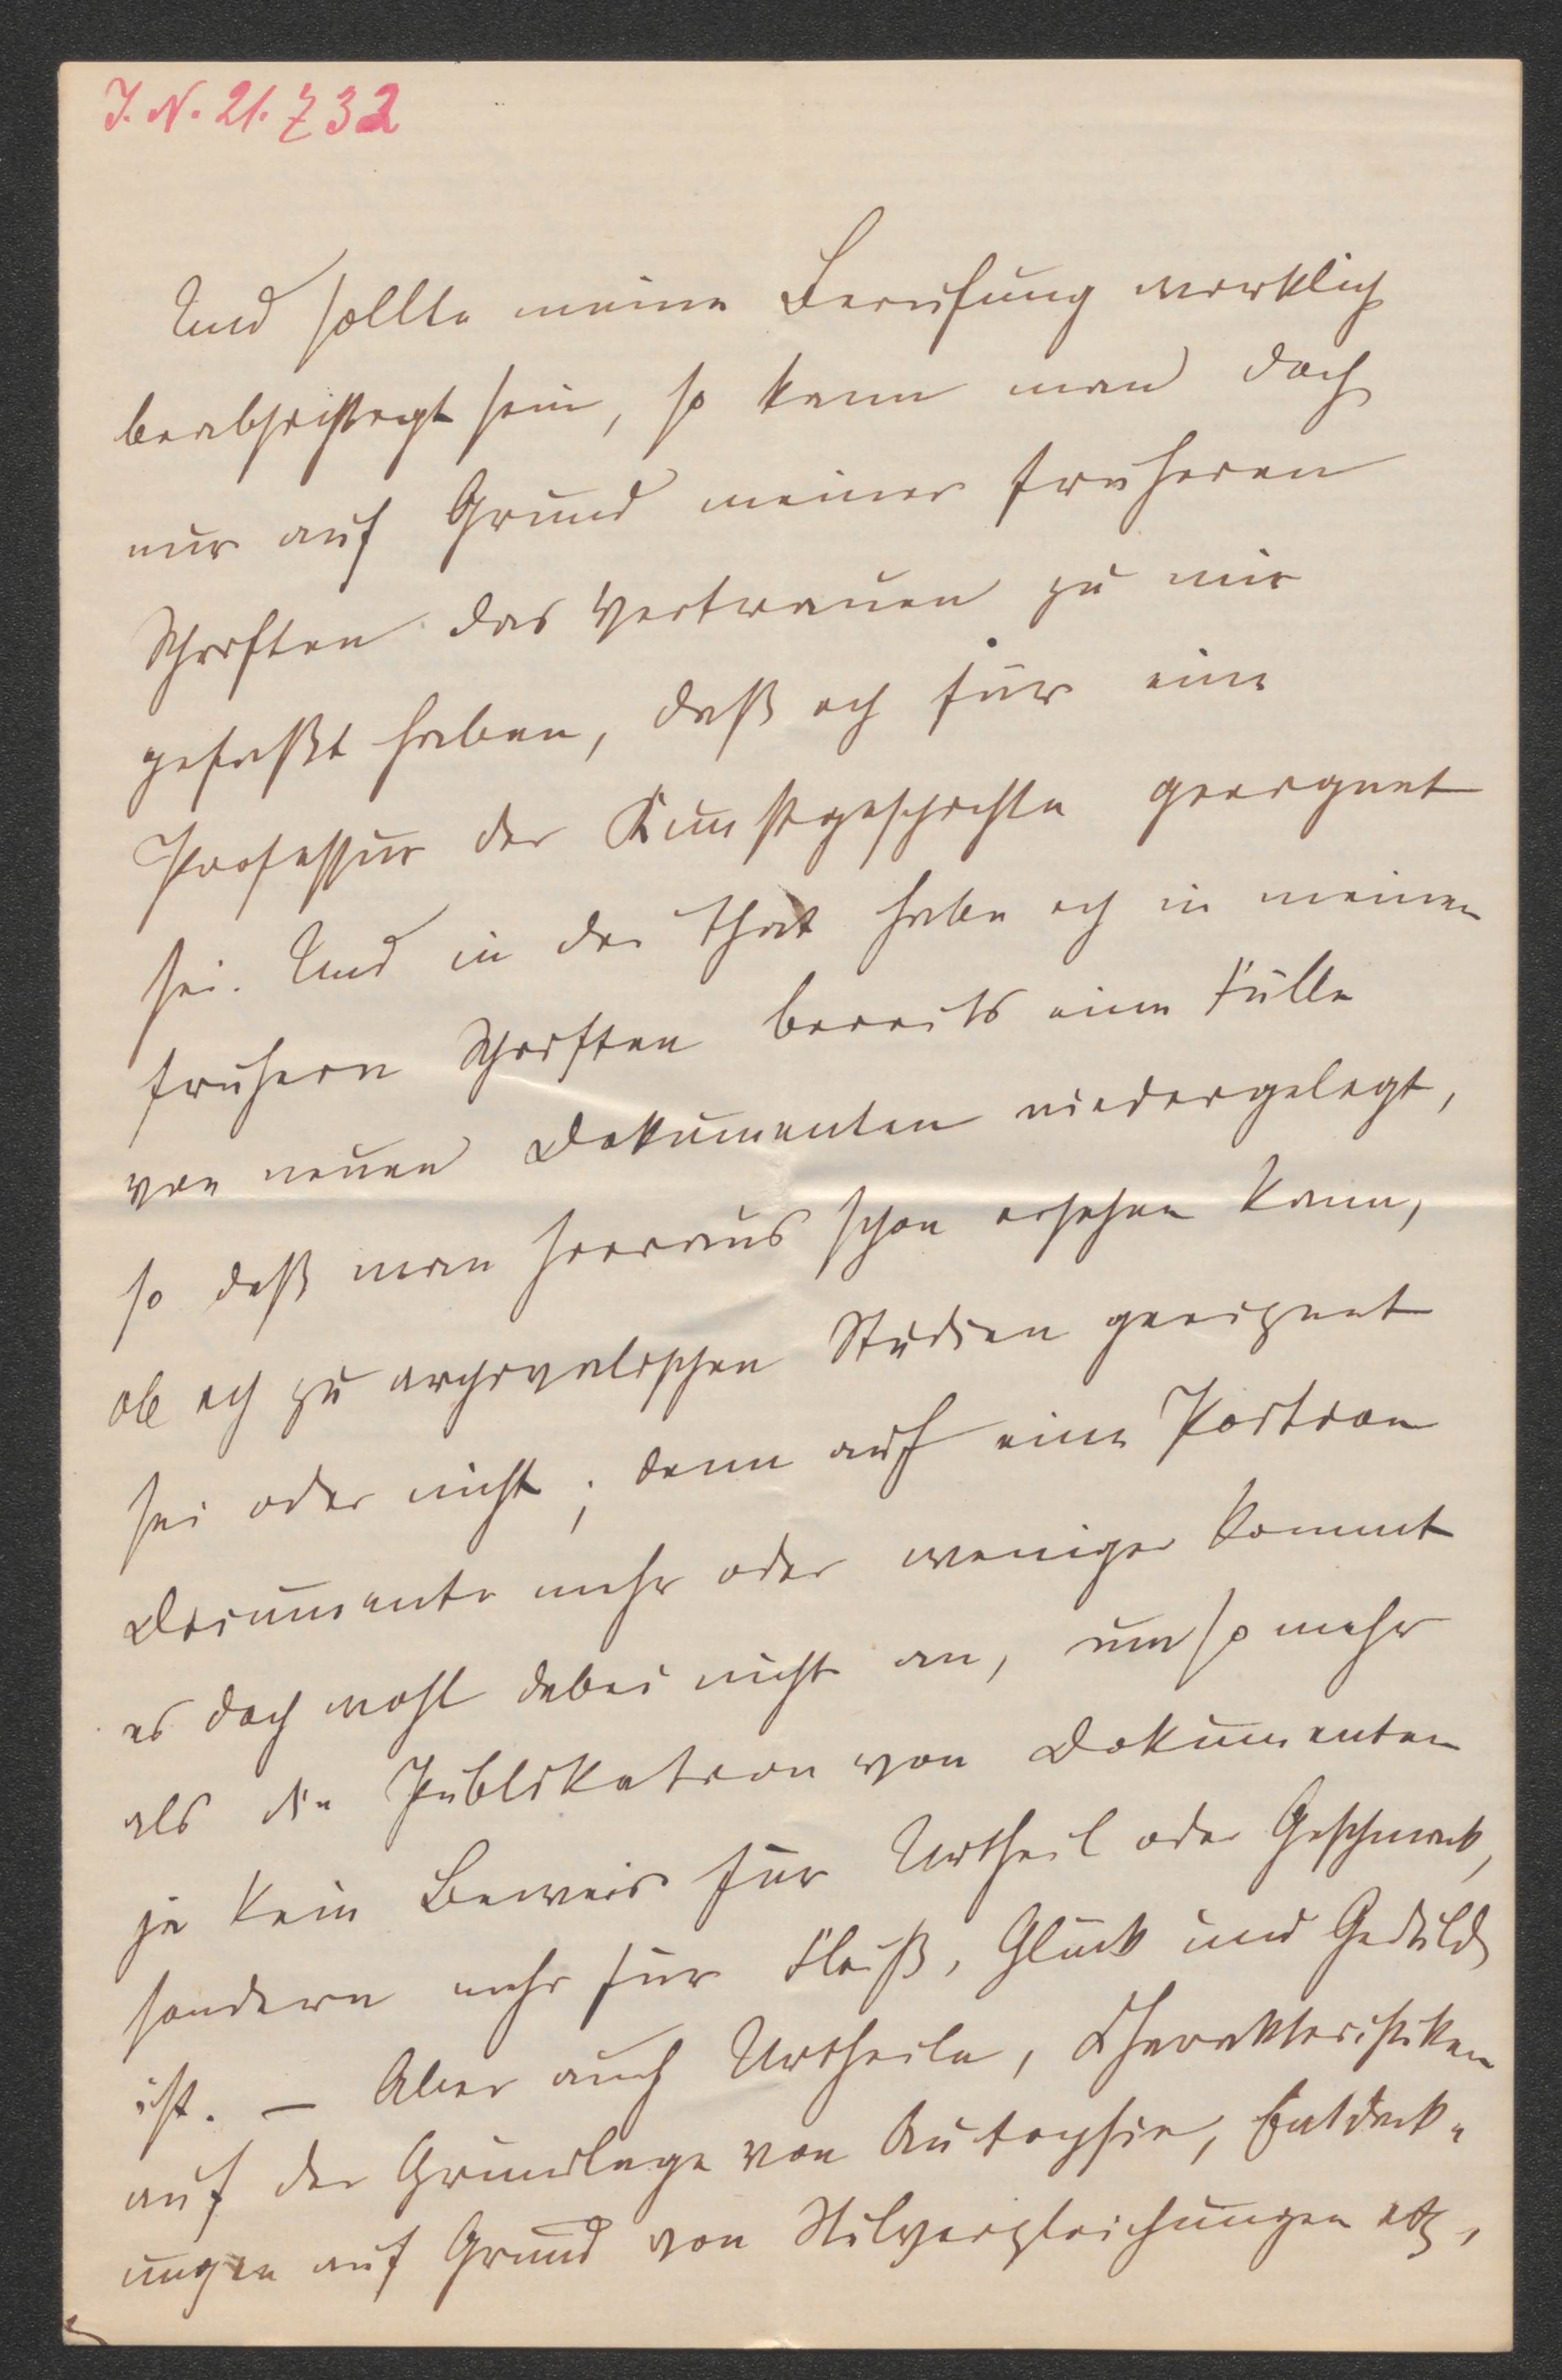 J. N. 21.732
Und sollte meine Berufung wirklich
beabsichtigt sein, so kann man doch
nur auf Grund meiner früheren
Schriften das Vertrauen zu mir
gefaßt haben, daß ich für eine
Professur der Kunstgeschichte geeignet
sei. Und in der That habe ich in meinen
frühern Schriften bereits eine Fülle
von neuen Dokumenten niedergelegt,
so daß man hieraus schon ersehen kann,
ob ich zu archivalischen Studien geeignet
sei oder nicht; denn auf eine Portion
Documente mehr oder weniger kommt
es doch wohl dabei nicht an, um so mehr
als die Publikation von Dokumenten
ja kein Beweis für Urtheil oder Geschmack,
sondern mehr für Fleiß, Glück und Geduld
ist. — Aber auch Urtheile, Charakteristiken
auf der Grundlage von Autopsie, Entdeck-
ungen auf Grund von Stilvergleichungen etz,